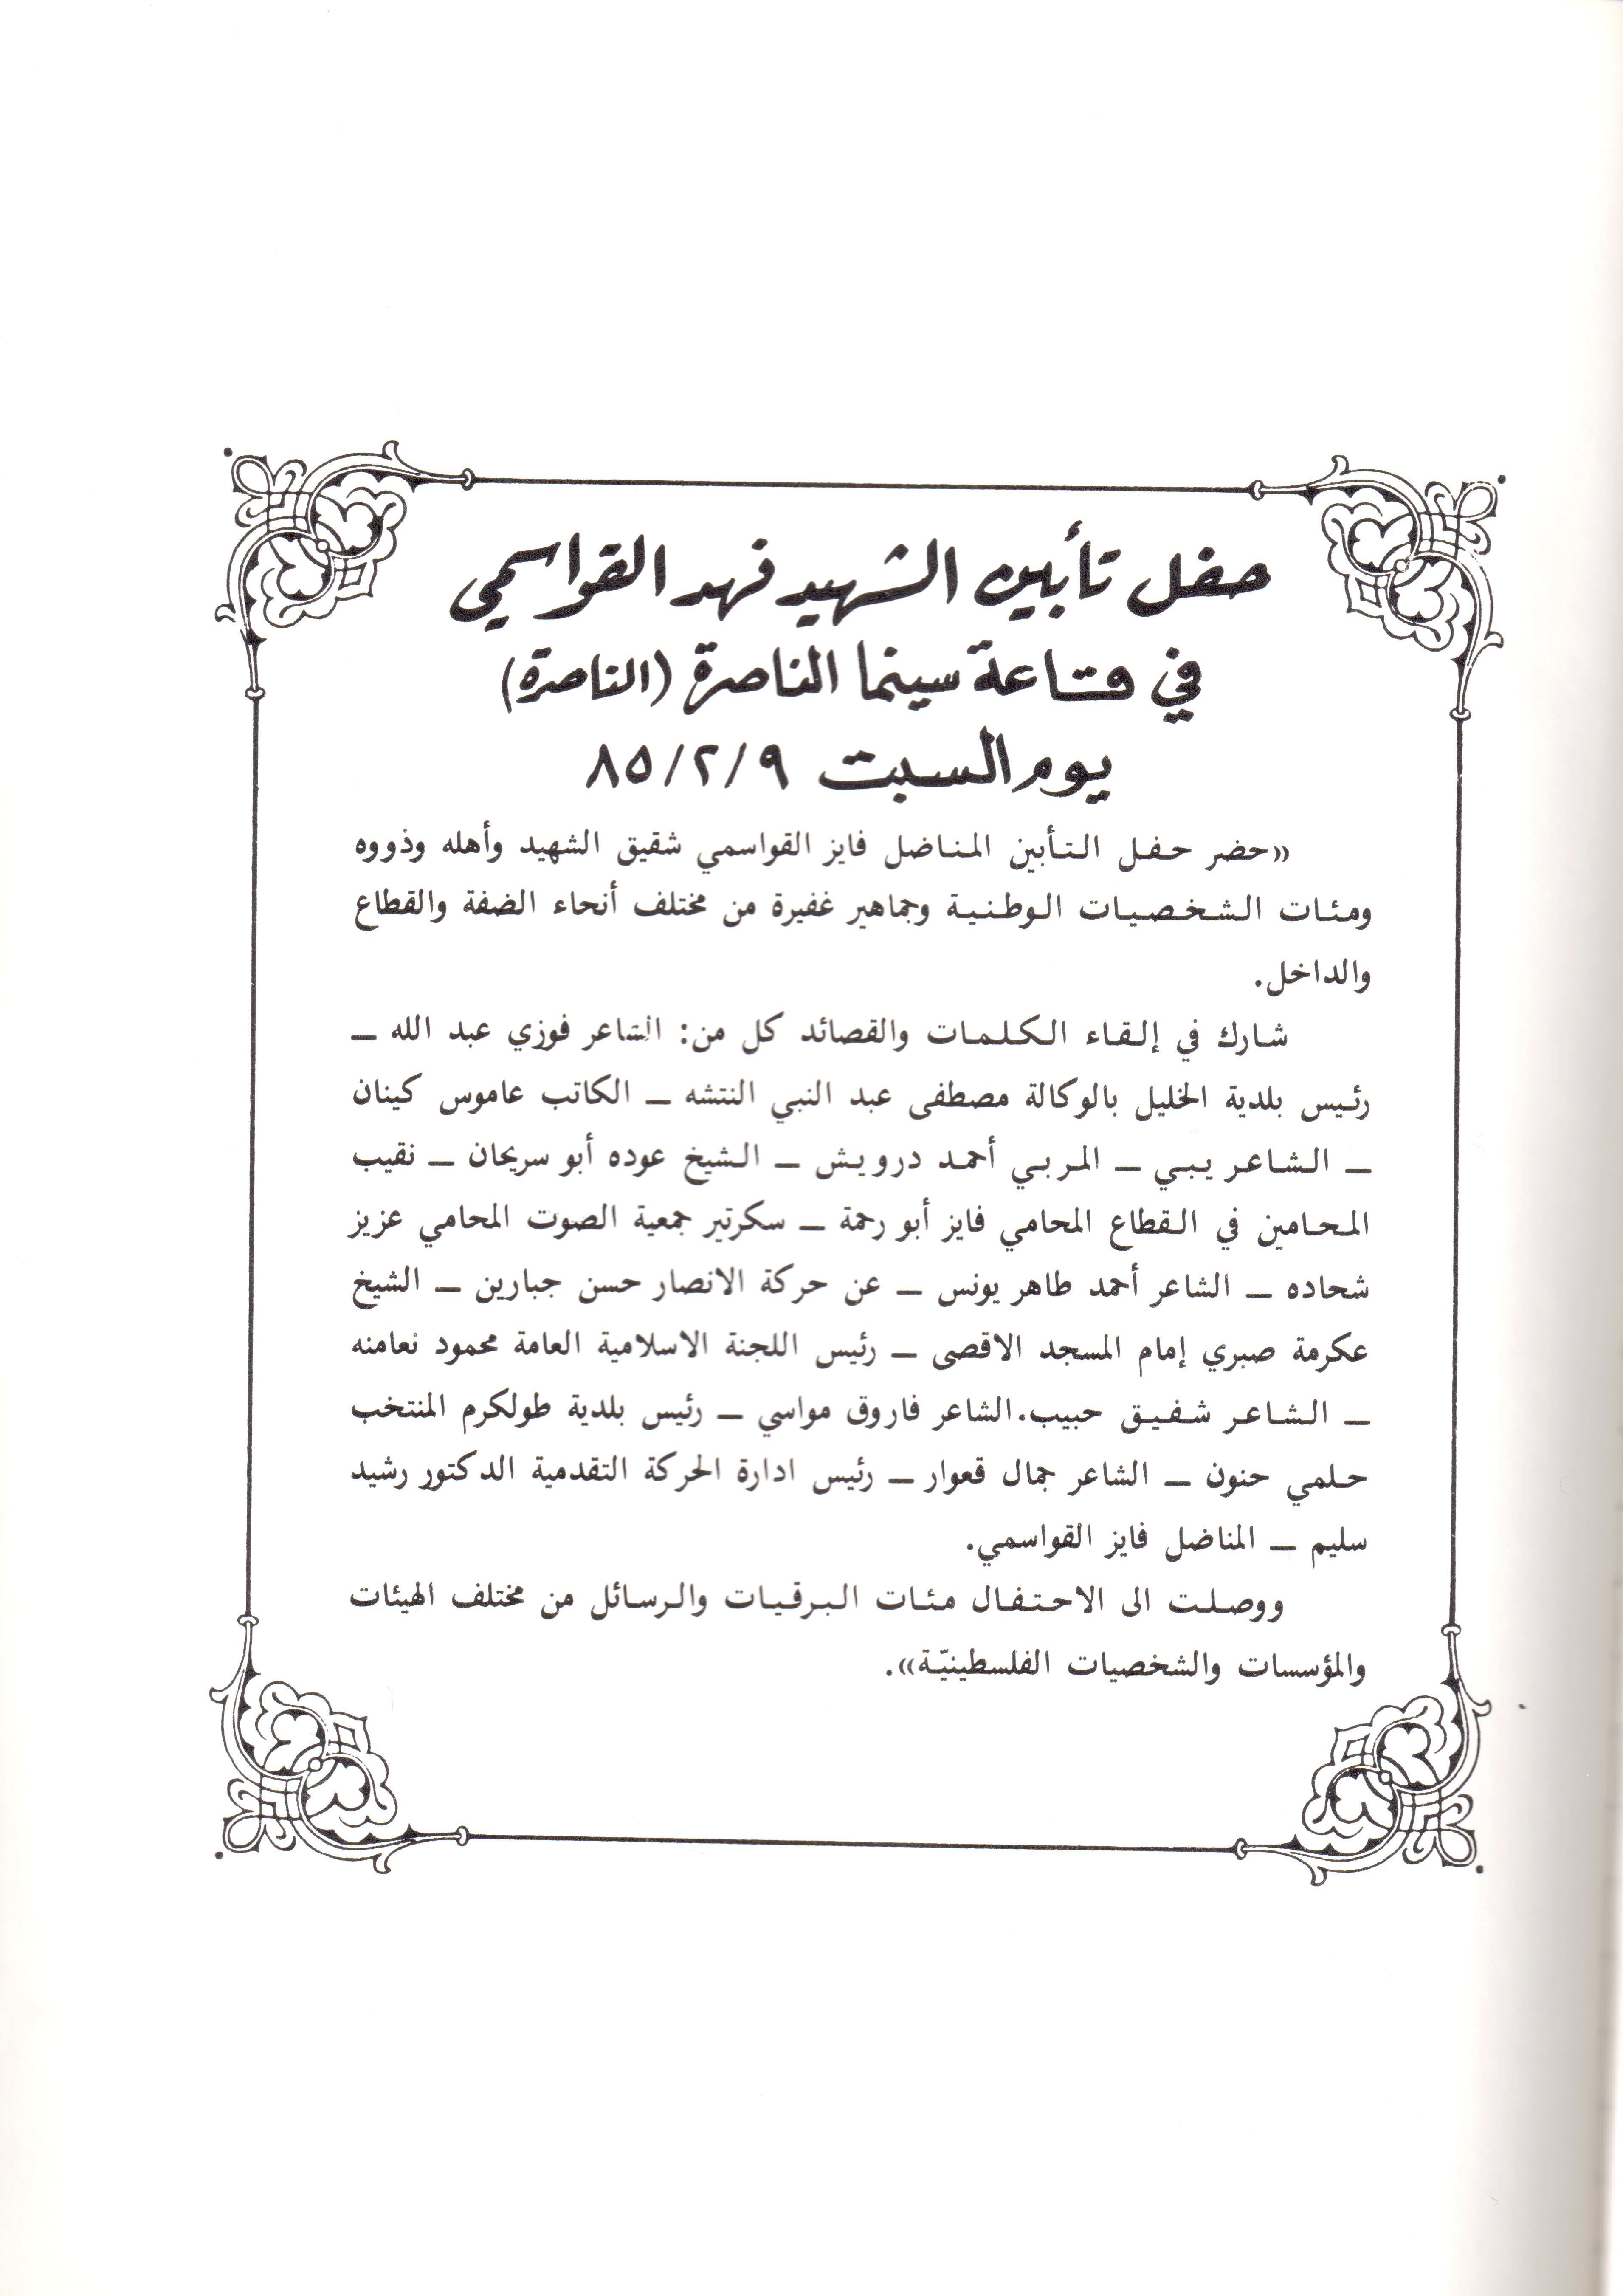 حفل تأبين الشهيد فهد القواسمي
في قاعة سينما الناصرة (الناصرة)
يوم السبت ٨٥/٢/٩
«حضر حفل التأبين المناضل فايز القواسمي شقيق الشهيد وأهله وذووه
ومئات الشخصيات الوطنية وجماهير غفيرة من مختلف أنحاء الضفة والقطاع
والداخل.
شارك في إلقاء الكلمات والقصائد كل من: الشاعر فوزي عبد الله —
رئيس بلدية الخليل بالوكالة مصطفى عبد النبي النتشه — الكاتب عاموس كينان
— الشاعر يبي — المربي أحمد درويش — الشيخ عوده أبو سريحان — نقيب
المحامين في القطاع المحامي فايز أبو رحمة — سكرتير جمعية الصوت المحامي عزيز
شحاده — الشاعر أحمد طاهر يونس — عن حركة الانصار حسن جبارين — الشيخ
عكرمة صبري إمام المسجد الاقصى — رئيس اللجنة الاسلامية العامة محمود نعامنه
— الشاعر شفيق حبيب. الشاعر فاروق مواسي — رئيس بلدية طولكرم المنتخب
حلمي حنون — الشاعر جمال قعوار — رئيس ادارة الحركة التقدمية الدكتور رشيد
سليم — المناضل فايز القواسمي.
ووصلت الى الاحتفال مئات البرقيات والرسائل من مختلف الهيئات
والمؤسسات والشخصيات الفلسطينيّة».